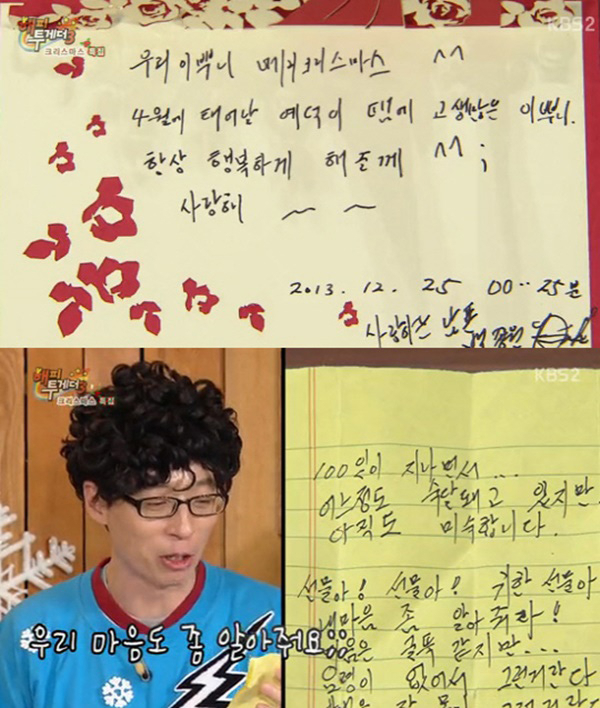 해피
투게더3
크리스마스 특집
KBS2
우리 이쁘니 메리크리스마스 ^^
4월에 태어날 예덕이 땜에 고생많은 이쁘니.
항상 행복하게 해줄께 ^^;
사랑해 ~ ~
2013. 12. 25 00..25분
사랑하는
해피
투게더3
크리스마스 특집
우리 마음도 좀 알아줘요;;
KBS2
100일이 지나면서...
어느정도 숙달돼고 있지만
아직도 미숙합니다.
선물아! 선물아! 귀한 선물아
내마음 좀 알아줘라!
굴뚝 같지만...
요령이 없어서 그런거란다